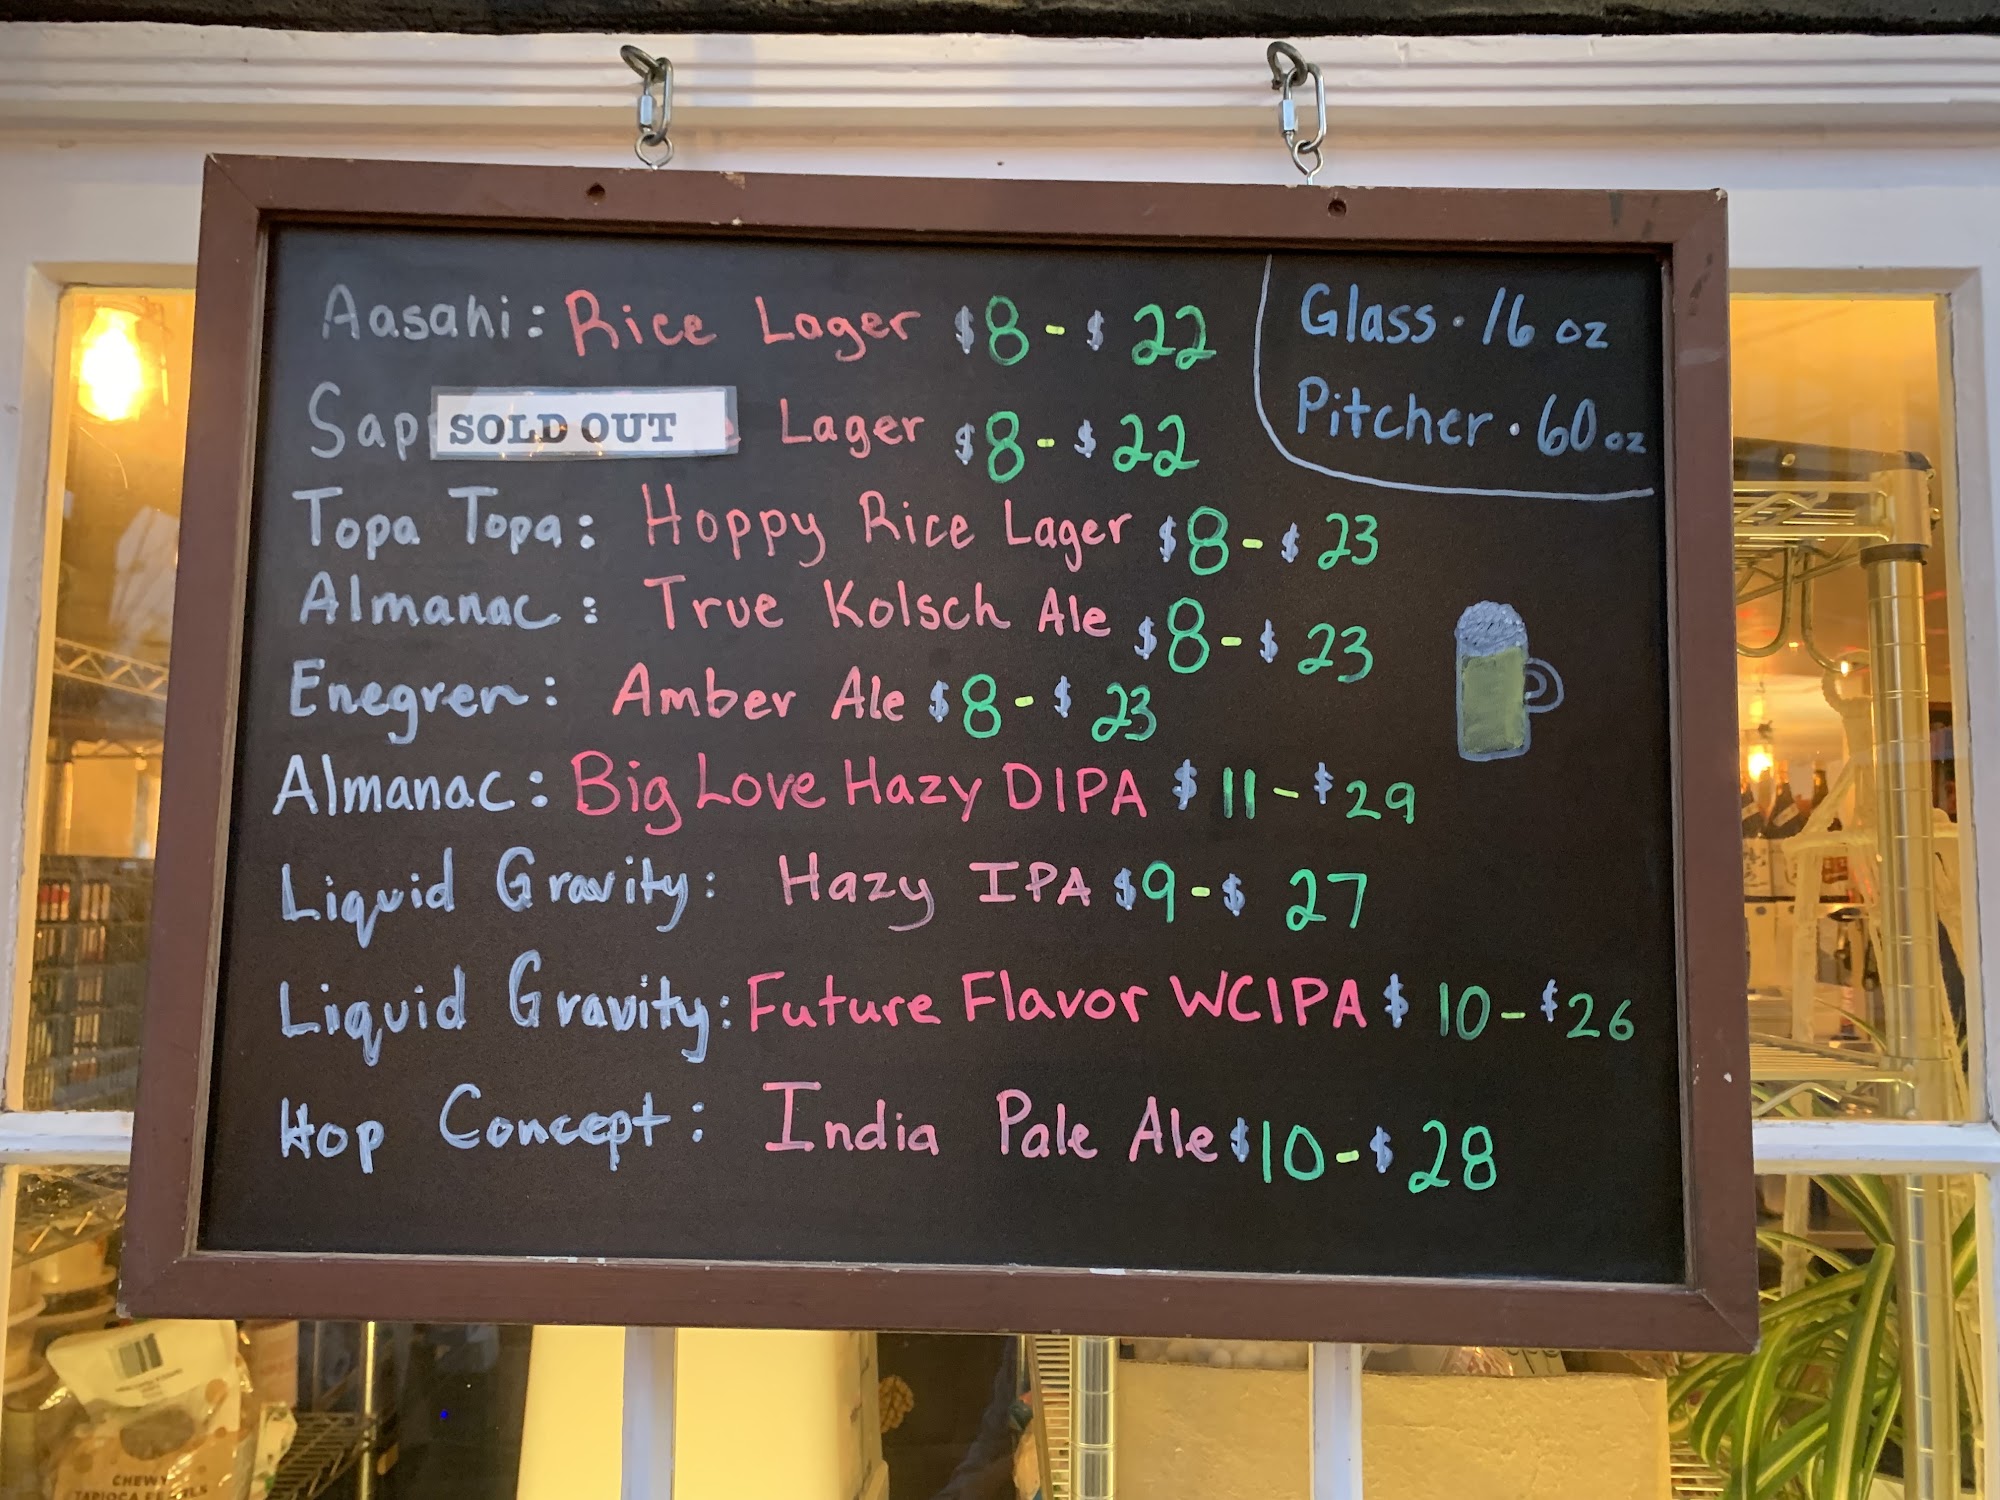 Aasahi: Rice Lager $8-$22
Glass · 16 oz
Pitcher · 60 oz
Sap SOLD OUT Lager $8-$22
Topa Topa: Hoppy Rice Lager $8-$23
Almanac: True Kolsch Ale $8-$23
Enegren: Amber Ale $8-$23
Almanac: Big Love Hazy DIPA $11-$29
Liquid Gravity: Hazy IPA $9-$27
Liquid Gravity: Future Flavor WCIPA $10-$26
Hop Concept: India Pale Ale $10-$28
CHEWY
TAPIOCA